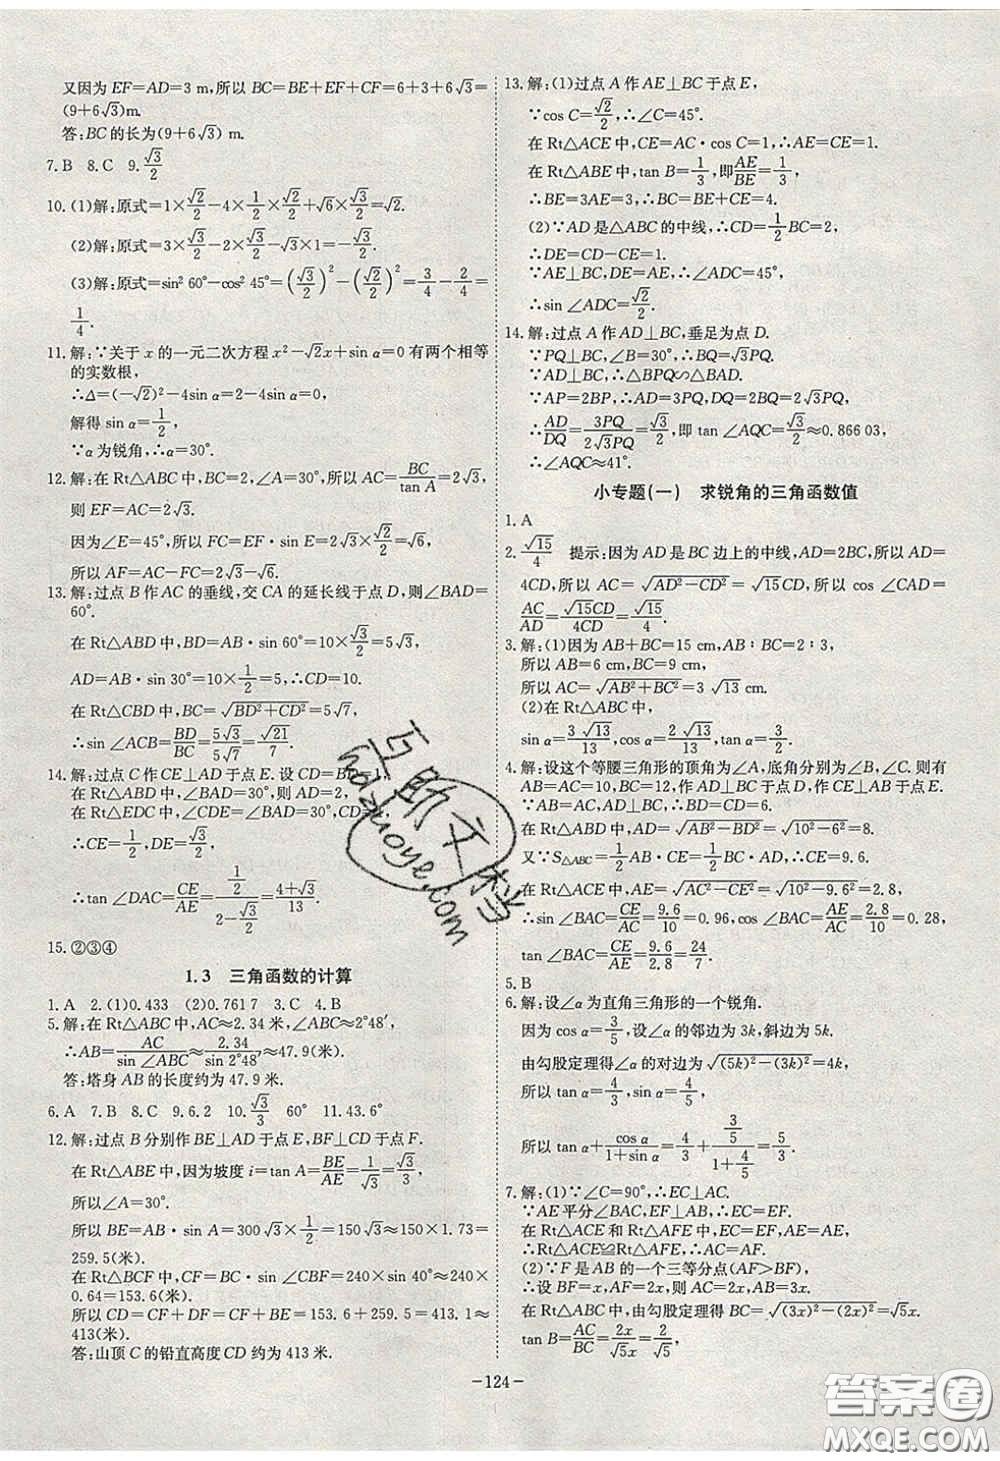 又因为 EF=AD=3 m,所以 BC=BE+EF+CF=6+3+6√3=
(9+6√3)m.
答:BC的长为(9+6√3) m.
7. B 8. C 9. √3/2
10. (1)解:原式=1×√2/2−4×1/2×√2/2+√6×√3/2=√2.
(2)解:原式=3×√3/2−2×√3/2−√3×1=−√3/2.
(3)解:原式=sin²60°−cos²45°=(√3/2)²−(√2/2)²=3/4−2/4=
1/4.
11. 解:∵关于 x 的一元二次方程 x²−√2x+sin α=0 有两个相等
的实数根,
∴Δ=(−√2)²−4sin α=2−4sin α=0,
解得 sin α=1/2,
∵α 为锐角,∴α=30°.
12. 解:在 Rt△ABC 中,BC=2,∠A=30°,所以 AC=BC/tan A=2√3,
则 EF=AC=2√3.
因为∠E=45°,所以 FC=EF·sin E=2√3×√2/2=√6,
所以 AF=AC−FC=2√3−√6.
13. 解:过点 B 作 AC 的垂线,交 CA 的延长线于点 D,则∠BAD=
60°.
在 Rt△ABD 中,BD=AB·sin 60°=10×√3/2=5√3,
AD=AB·sin 30°=10×1/2=5,∴CD=10.
在 Rt△CBD 中,BC=√(BD²+CD²)=5√7,
∴sin ∠ACB=BD/BC=5√3/5√7=√21/7.
14. 解:过点 C 作 CE⊥AD 于点 E. 设 CD=BD=1,
在 Rt△ABD 中,∠B=30°,则 AD=2,
在 Rt△EDC 中,∠CDE=∠BAD=30°,CD=1,
∴CE=1/2,DE=√3/2,
∴tan ∠DAC=CE/AE=(1/2)/(2−√3/2)=(4+√3)/13.
15. ②③④
1.3 三角函数的计算
1. A 2. (1)0.433 (2)0.761 7 3. C 4. B
5. 解:在 Rt△ABC 中,AC≈2.34 米,∠ABC≈2°48′,
∴AB=AC/sin ∠ABC≈2.34/sin 2°48′≈47.9(米).
答:塔身 AB 的长度约为 47.9 米.
6. A 7. B 8. C 9. 6.2 10. √3/3 60° 11. 43.6°
12. 解:过点 B 分别作 BE⊥AD 于点 E,BF⊥CD 于点 F.
在 Rt△ABE 中,因为坡度 i=tan A=BE/AE=1/√3=√3/3,
所以∠A=30°.
所以 BE=AB·sin A=300√3×1/2=150√3≈150×1.73=
259.5(米).
在 Rt△BCF 中,CF=BC·sin ∠CBF=240×sin 40°≈240×
0.64=153.6(米).
所以 CD=CF+DF=CF+BE=153.6+259.5=413.1≈
413(米).
答:山顶 C 的铅直高度 CD 约为 413 米.
13. 解:(1)过点 A 作 AE⊥BC 于点 E,
∵cos C=√2/2,∴∠C=45°.
在 Rt△ACE 中,CE=AC·cos C=1,∴AE=CE=1.
在 Rt△ABE 中,tan B=1/3,即AE/BE=1/3,
∴BE=3AE=3,∴BC=BE+CE=4.
(2)∵AD 是△ABC 的中线,∴CD=1/2BC=2,
∴DE=CD−CE=1.
∵AE⊥BC,DE=AE,∴∠ADC=45°,
∴sin ∠ADC=√2/2.
14. 解:过点 A 作 AD⊥BC,垂足为点 D.
∵PQ⊥BC,∠B=30°,∴BQ=√3PQ.
∵AD⊥BC,∴△BPQ∽△BAD.
∵AP=2BP,∴AD=3PQ,DQ=2BQ=2√3PQ,
∴AD/DQ=3PQ/2√3PQ=√3/2,即 tan ∠AQC=√3/2≈0.866 03,
∴∠AQC≈41°.
小专题(一) 求锐角的三角函数值
1. A
2. √15/4 提示:因为 AD 是 BC 边上的中线,AD=2BC,所以 AD=
4CD,所以 AC=√(AD²−CD²)=√15CD,所以 cos ∠CAD=
AC/AD=√15CD/4CD=√15/4.
3. 解:(1)因为 AB+BC=15 cm,AB∶BC=2∶3,
所以 AB=6 cm,BC=9 cm,
所以 AC=√(AB²+BC²)=3√13 cm.
(2)在 Rt△ABC 中,
sin α=3√13/13,cos α=2√13/13,tan α=3/2.
4. 解:设这个等腰三角形的顶角为∠A,底角分别为∠B,∠C. 则有
AB=AC=10,BC=12,作 AD⊥BC 于点 D,作 CE⊥AB 于点 E.
∵AB=AC,AD⊥BC,∴BD=CD=6.
在 Rt△ABD 中,AD=√(AB²−BD²)=√(10²−6²)=8.
又∵S△ABC=1/2AB·CE=1/2BC·AD,∴CE=9.6.
在 Rt△ACE 中,AE=√(AC²−CE²)=√(10²−9.6²)=2.8,
∴sin ∠BAC=CE/AC=9.6/10=0.96,cos ∠BAC=AE/AC=2.8/10=0.28,
tan ∠BAC=CE/AE=9.6/2.8=24/7.
5. B
6. 解:设∠α 为直角三角形的一个锐角.
因为 cos α=3/5,设∠α 的邻边为 3k,斜边为 5k.
由勾股定理得∠α 的对边为√((5k)²−(3k)²)=4k,
所以 tan α=4/3,sin α=4/5,
所以 tan α+cos α/(1+sin α)=4/3+(3/5)/(1+4/5)=5/3.
7. 解:(1)∵∠C=90°,∴EC⊥AC.
∵AE 平分∠BAC,EF⊥AB,∴EC=EF.
在 Rt△ACE 和 Rt△AFE 中,EC=EF,AE=AE,
∴Rt△ACE≌Rt△AFE,∴AC=AF.
(2)∵F 是 AB 的一个三等分点(AF>BF),
∴设 BF=x,AF=2x,则 AC=2x,AB=3x,
在 Rt△ABC 中,由勾股定理得 BC=√((3x)²−(2x)²)=√5x.
tan B=AC/BC=2x/√5x=2/√5,
-124-
互助文档
hdzuoye.com
答案圈
MXQE.COM